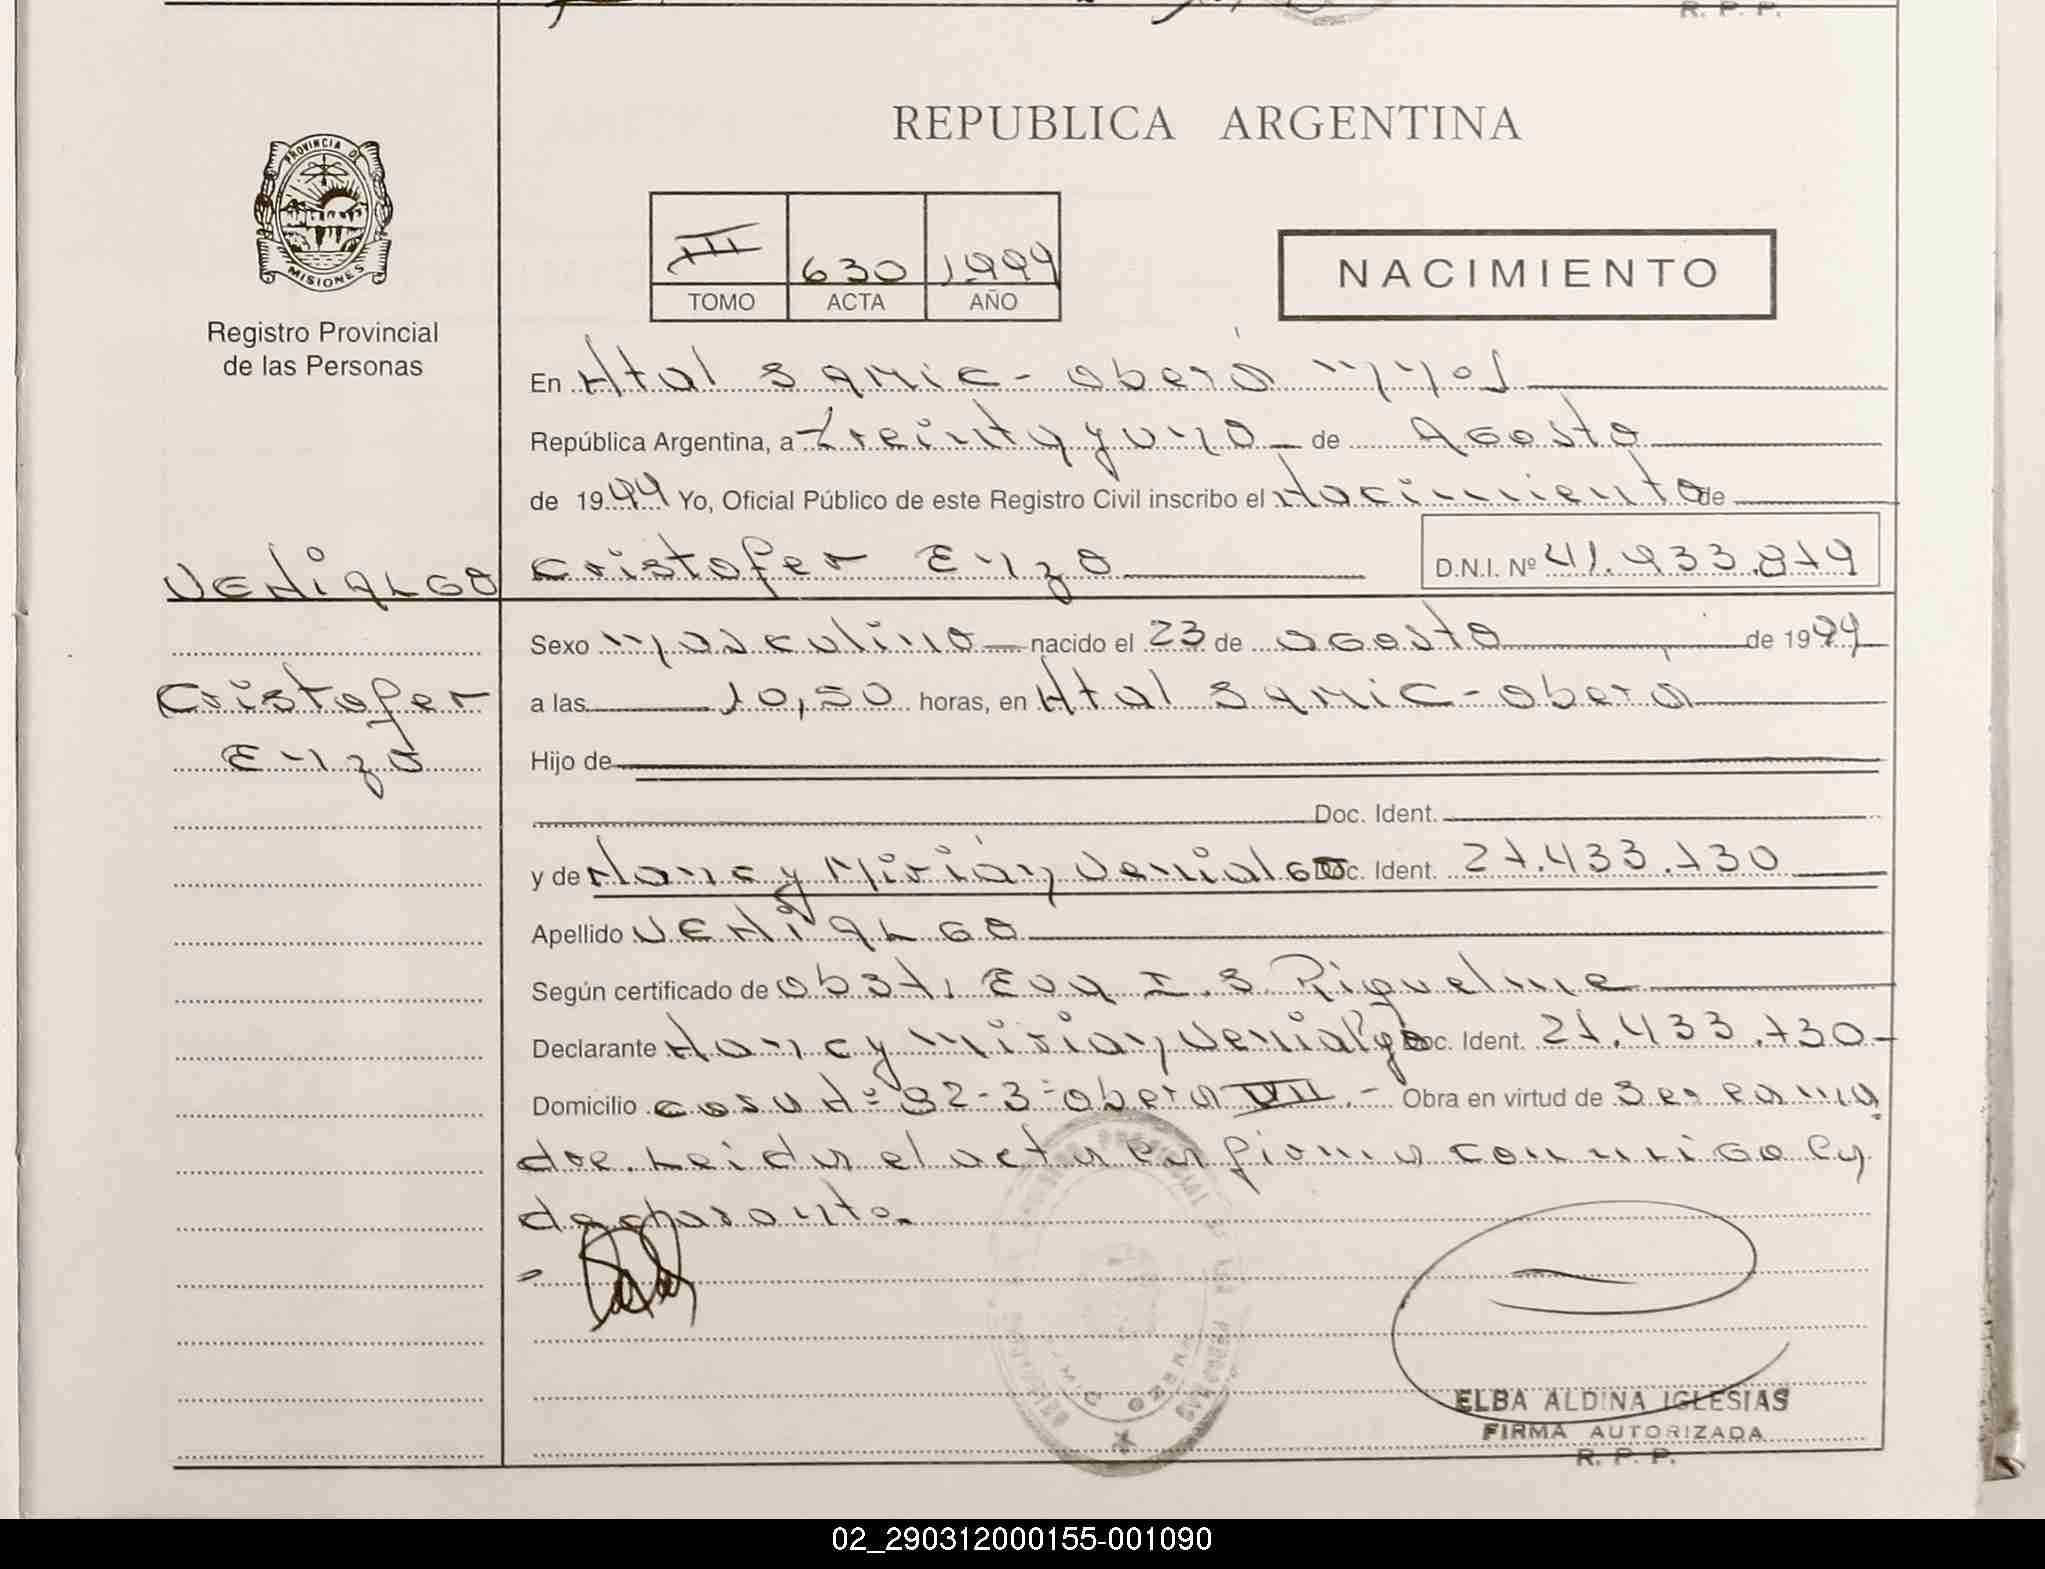 R. P. P.
REPUBLICA ARGENTINA
PROVINCIA DE
MISIONES
Registro Provincial
de las Personas
III 630 1999
TOMO ACTA AÑO
NACIMIENTO
En Htal SAMIC - Oberá Mnes
República Argentina, a treinta y uno de Agosto
de 1999 Yo, Oficial Público de este Registro Civil inscribo el Nacimiento de
VENIALGO Cristofer Enzo D.N.I. Nº 41.933.879
Sexo masculino nacido el 23 de agosto de 1999
Cristofer a las 10,50 horas, en Htal SAMIC - Oberá
Enzo Hijo de
Doc. Ident.
y de Nancy Mirian Venialgo Doc. Ident. 27.433.730
Apellido VENIALGO
Según certificado de Obst. Eva I. S. Riquelme
Declarante Nancy Mirian Venialgo Doc. Ident. 27.433.730-
Domicilio casa Nº 92-3-Oberá VII.- Obra en virtud de Ser la ma
dre. Leida el acta la firma conmigo la
declarante.
ELBA ALDINA IGLESIAS
FIRMA AUTORIZADA
R. P. P.
02_290312000155-001090